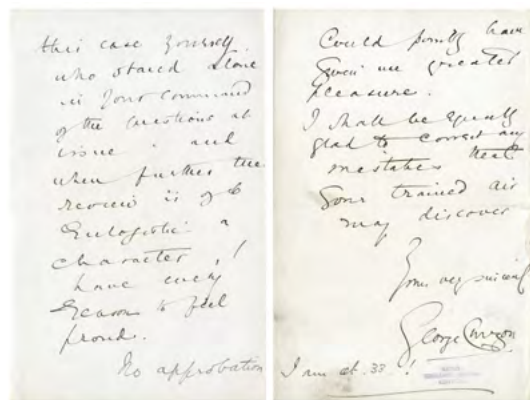 this case yourself.
who stand alone
in your command
of the questions at
issue: and
when further the
review is of so
Eulogistic a
character, I
have every
reason to feel
proud.
No approbation
Could possibly have
given me greater
pleasure.
I shall be equally
glad to correct any
mistakes that
your trained air
may discover
Yours very sincerely
George Curzon
I am at 33!